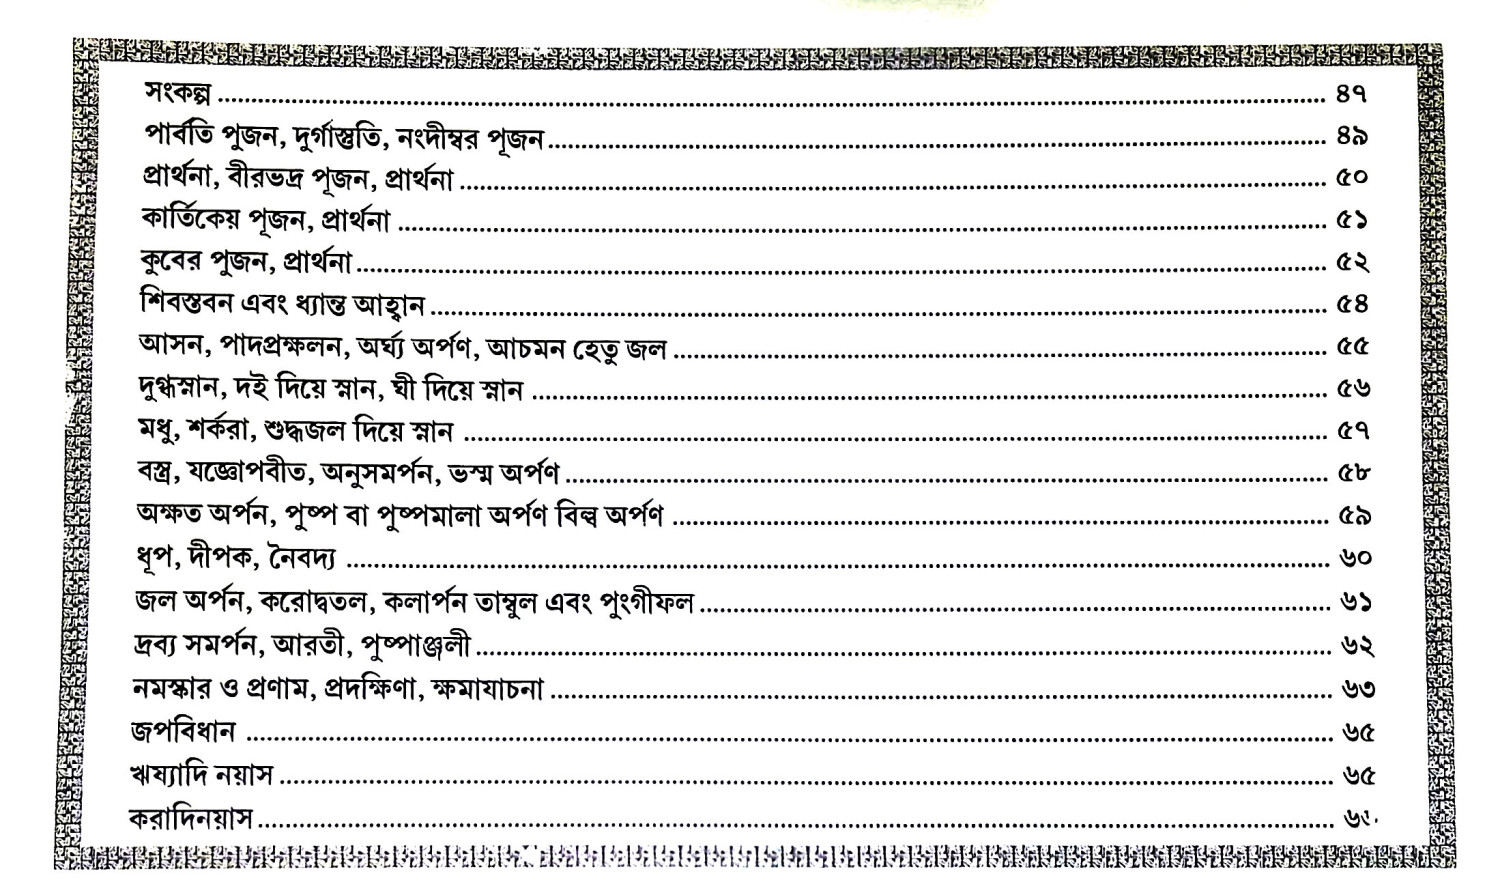 সংকল্প ........ ৪৭
পার্বতি পুজন, দুর্গাস্তুতি, নংদীশ্বর পূজন ........ ৪৯
প্রার্থনা, বীরভদ্র পূজন, প্রার্থনা ........ ৫০
কার্তিকেয় পূজন, প্রার্থনা ........ ৫১
কুবের পুজন, প্রার্থনা ........ ৫২
শিবস্তবন এবং ধ্যান্ত আহ্বান ........ ৫৪
আসন, পাদপ্রক্ষলন, অর্ঘ্য অর্পণ, আচমন হেতু জল ........ ৫৫
দুগ্ধস্নান, দই দিয়ে স্নান, ঘী দিয়ে স্নান ........ ৫৬
মধু, শর্করা, শুদ্ধজল দিয়ে স্নান ........ ৫৭
বস্ত্র, যজ্ঞোপবীত, অনুসমর্পন, ভস্ম অর্পণ ........ ৫৮
অক্ষত অর্পন, পুষ্প বা পুষ্পমালা অর্পণ বিল্ব অর্পণ ........ ৫৯
ধূপ, দীপক, নৈবদ্য ........ ৬০
জল অর্পন, করোদ্বতল, কলার্পন তাম্বুল এবং পুংগীফল ........ ৬১
দ্রব্য সমর্পন, আরতী, পুষ্পাঞ্জলী ........ ৬২
নমস্কার ও প্রণাম, প্রদক্ষিণা, ক্ষমাযাচনা ........ ৬৩
জপবিধান ........ ৬৫
ঋষ্যাদি নয়াস ........ ৬৫
করাদিনয়াস ........